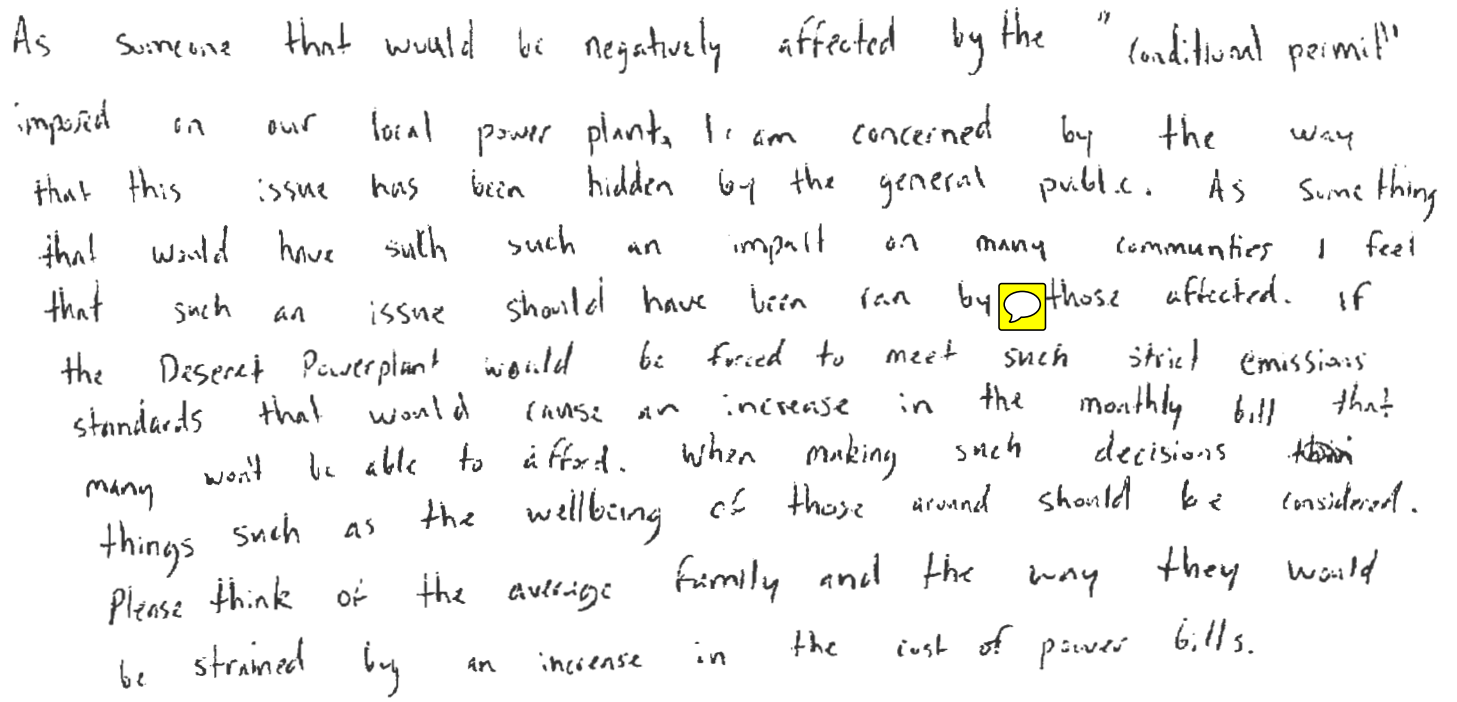 As someone that would be negatively affected by the "conditional permit"
imposed on our local power plant, I am concerned by the way
that this issue has been hidden by the general public. As something
that would have such such an impact on many communties I feel
that such an issue should have been ran by those affected. If
the Deseret Powerplant would be forced to meet such strict emissions
standards that would cause an increase in the monthly bill that
many won't be able to afford. When making such decisions
things such as the wellbeing of those around should be considered.
Please think of the average family and the way they would
be strained by an increase in the cost of power bills.